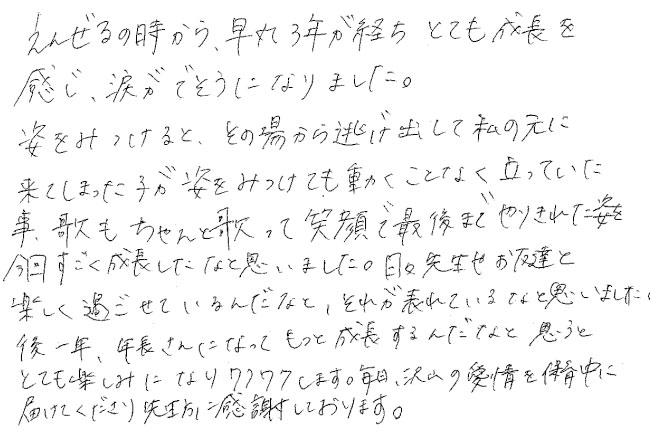 えんぜるの時から、早れ3年が経ち とても成長を
感じ、涙がでそうになりました。
姿をみつけると、その場から逃げ出して私の元に
来てしまった子が姿をみつけても動かくことなく立っていた
事、歌もちゃんと歌って笑顔で最後までやりきれた姿を
今日すごく成長したなと思いました。日々先生やお友達と
楽しく過ごせているんだなと、それが表れているなと思いました。
後一年、年長さんになってもっと成長するんだなと 思うと
とても楽しみになりワクワクします。毎日、沢山の愛情を保育中に
届けてくださり先生方に感謝しております。